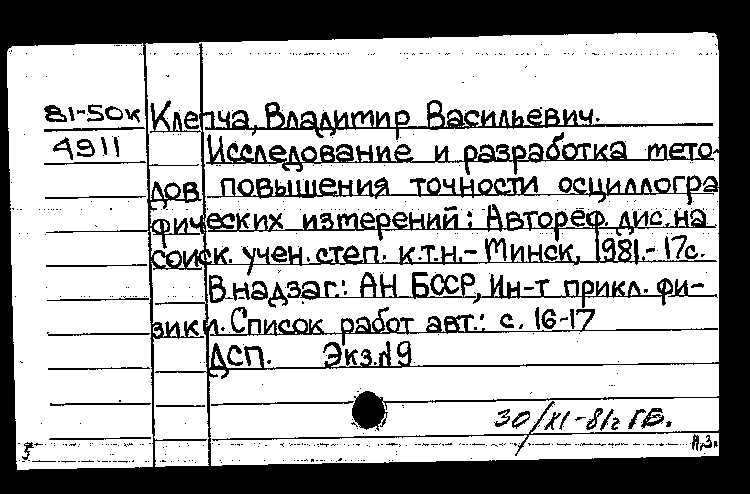 81-50к Клепча, Владимир Васильевич.
4911 Исследование и разработка мето-
дов повышения точности осциллогра
фических измерений: Автореф. дис. на
соиск. учен. степ. к.т.н. - Минск, 1981. - 17с.
В надзаг.: АН БССР, Ин-т прикл. фи-
зики. Список работ авт.: с. 16-17
ДСП. Экз. №9
30/XI-81г ГБ.